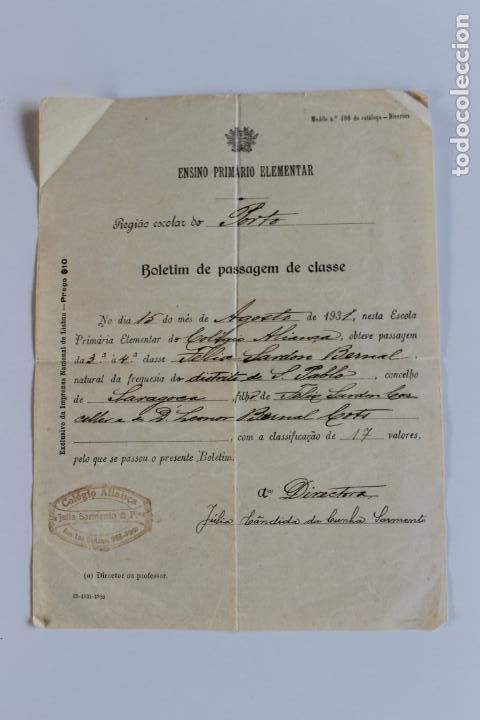 Modêlo n.º 100 do catálogo — Diversos
ENSINO PRIMÁRIO ELEMENTAR
Região escolar do Porto
Boletim de passagem de classe
No dia 15 do mês de Agosto de 1931, nesta Escola
Primária Elementar do Colégio Aliança, obteve passagem
da 3.ª à 4.ª classe Felix Sardon Bernal
natural da freguesia do distrito de S. Pablo, concelho
de Saragoça, filho de Felix Sardon
e de D. Leonor Bernal Coto
, com a classificação de 17 valores,
pelo que se passou o presente Boletim.
(a) Directora
Júlia Cândida da Cunha Sarmento
Colégio Aliança
Julia Sarmento &
Porto
(a) Director ou professor.
Exclusivo da Imprensa Nacional de Lisboa — Preço $10
todocoleccion.net